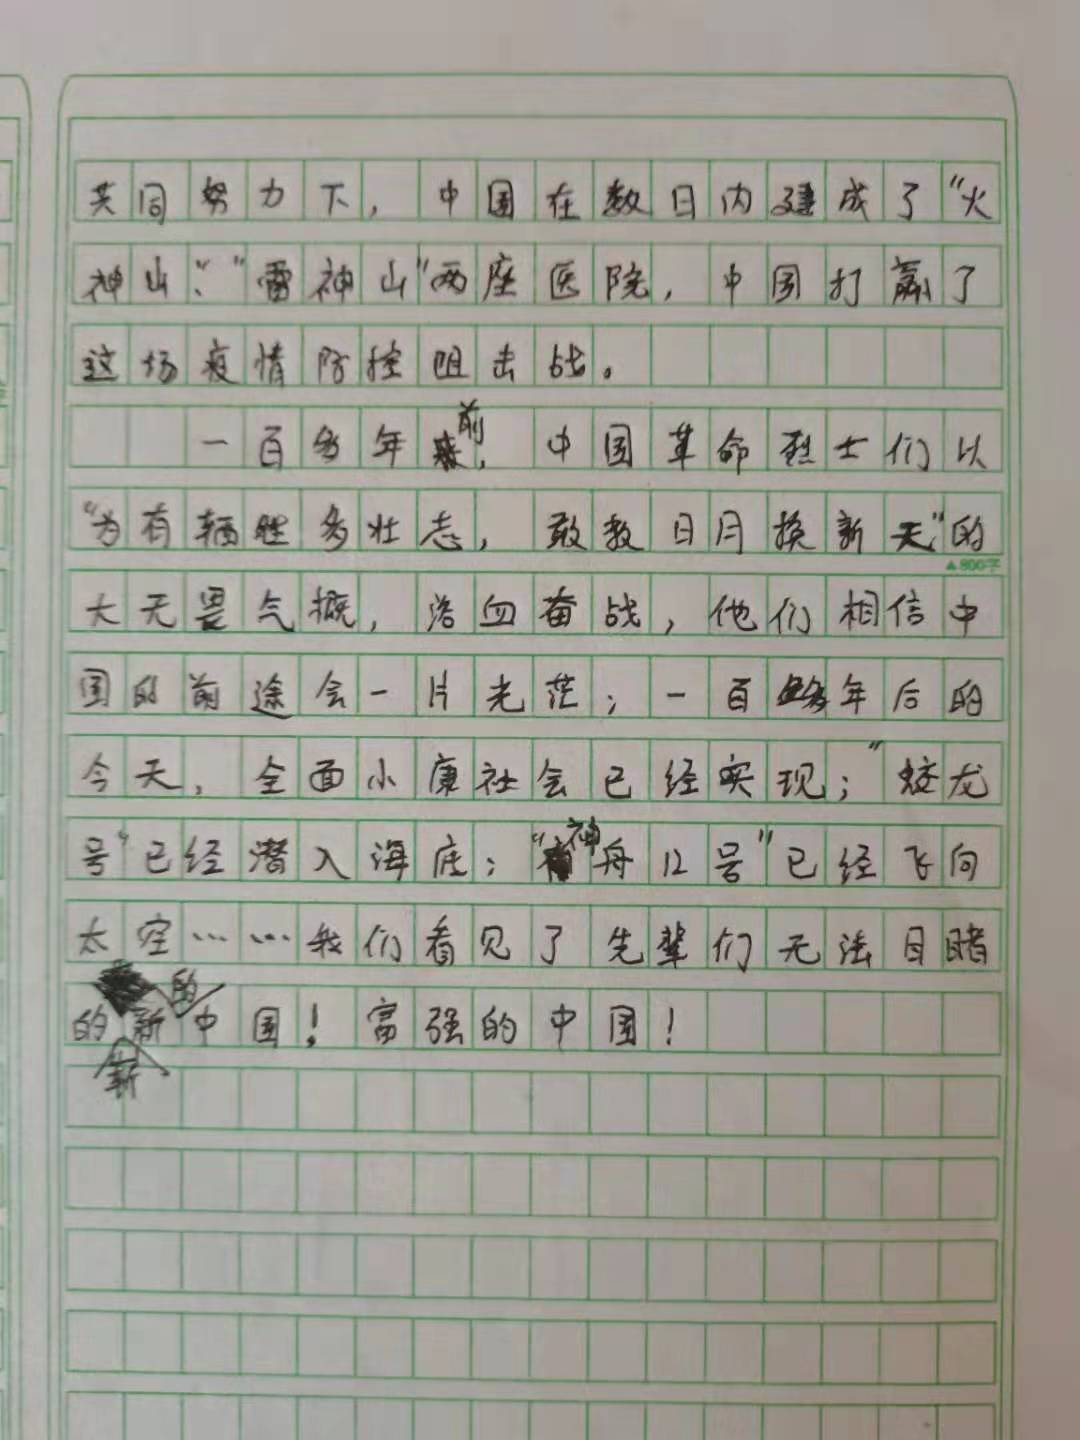 共同努力下，中国在数日内建成了“火
神山”、“雷神山”两座医院，中国打赢了
这场疫情防控阻击战。
一百多年前，中国革命烈士们以
“为有牺牲多壮志，敢教日月换新天”的
▲800字
大无畏气概，浴血奋战，他们相信中
国的前途会一片光茫；一百多年后的
今天，全面小康社会已经实现；“蛟龙
号”已经潜入海底；“神舟12号”已经飞向
太空……我们看见了先辈们无法目睹
的新的中国！富强的中国！
新